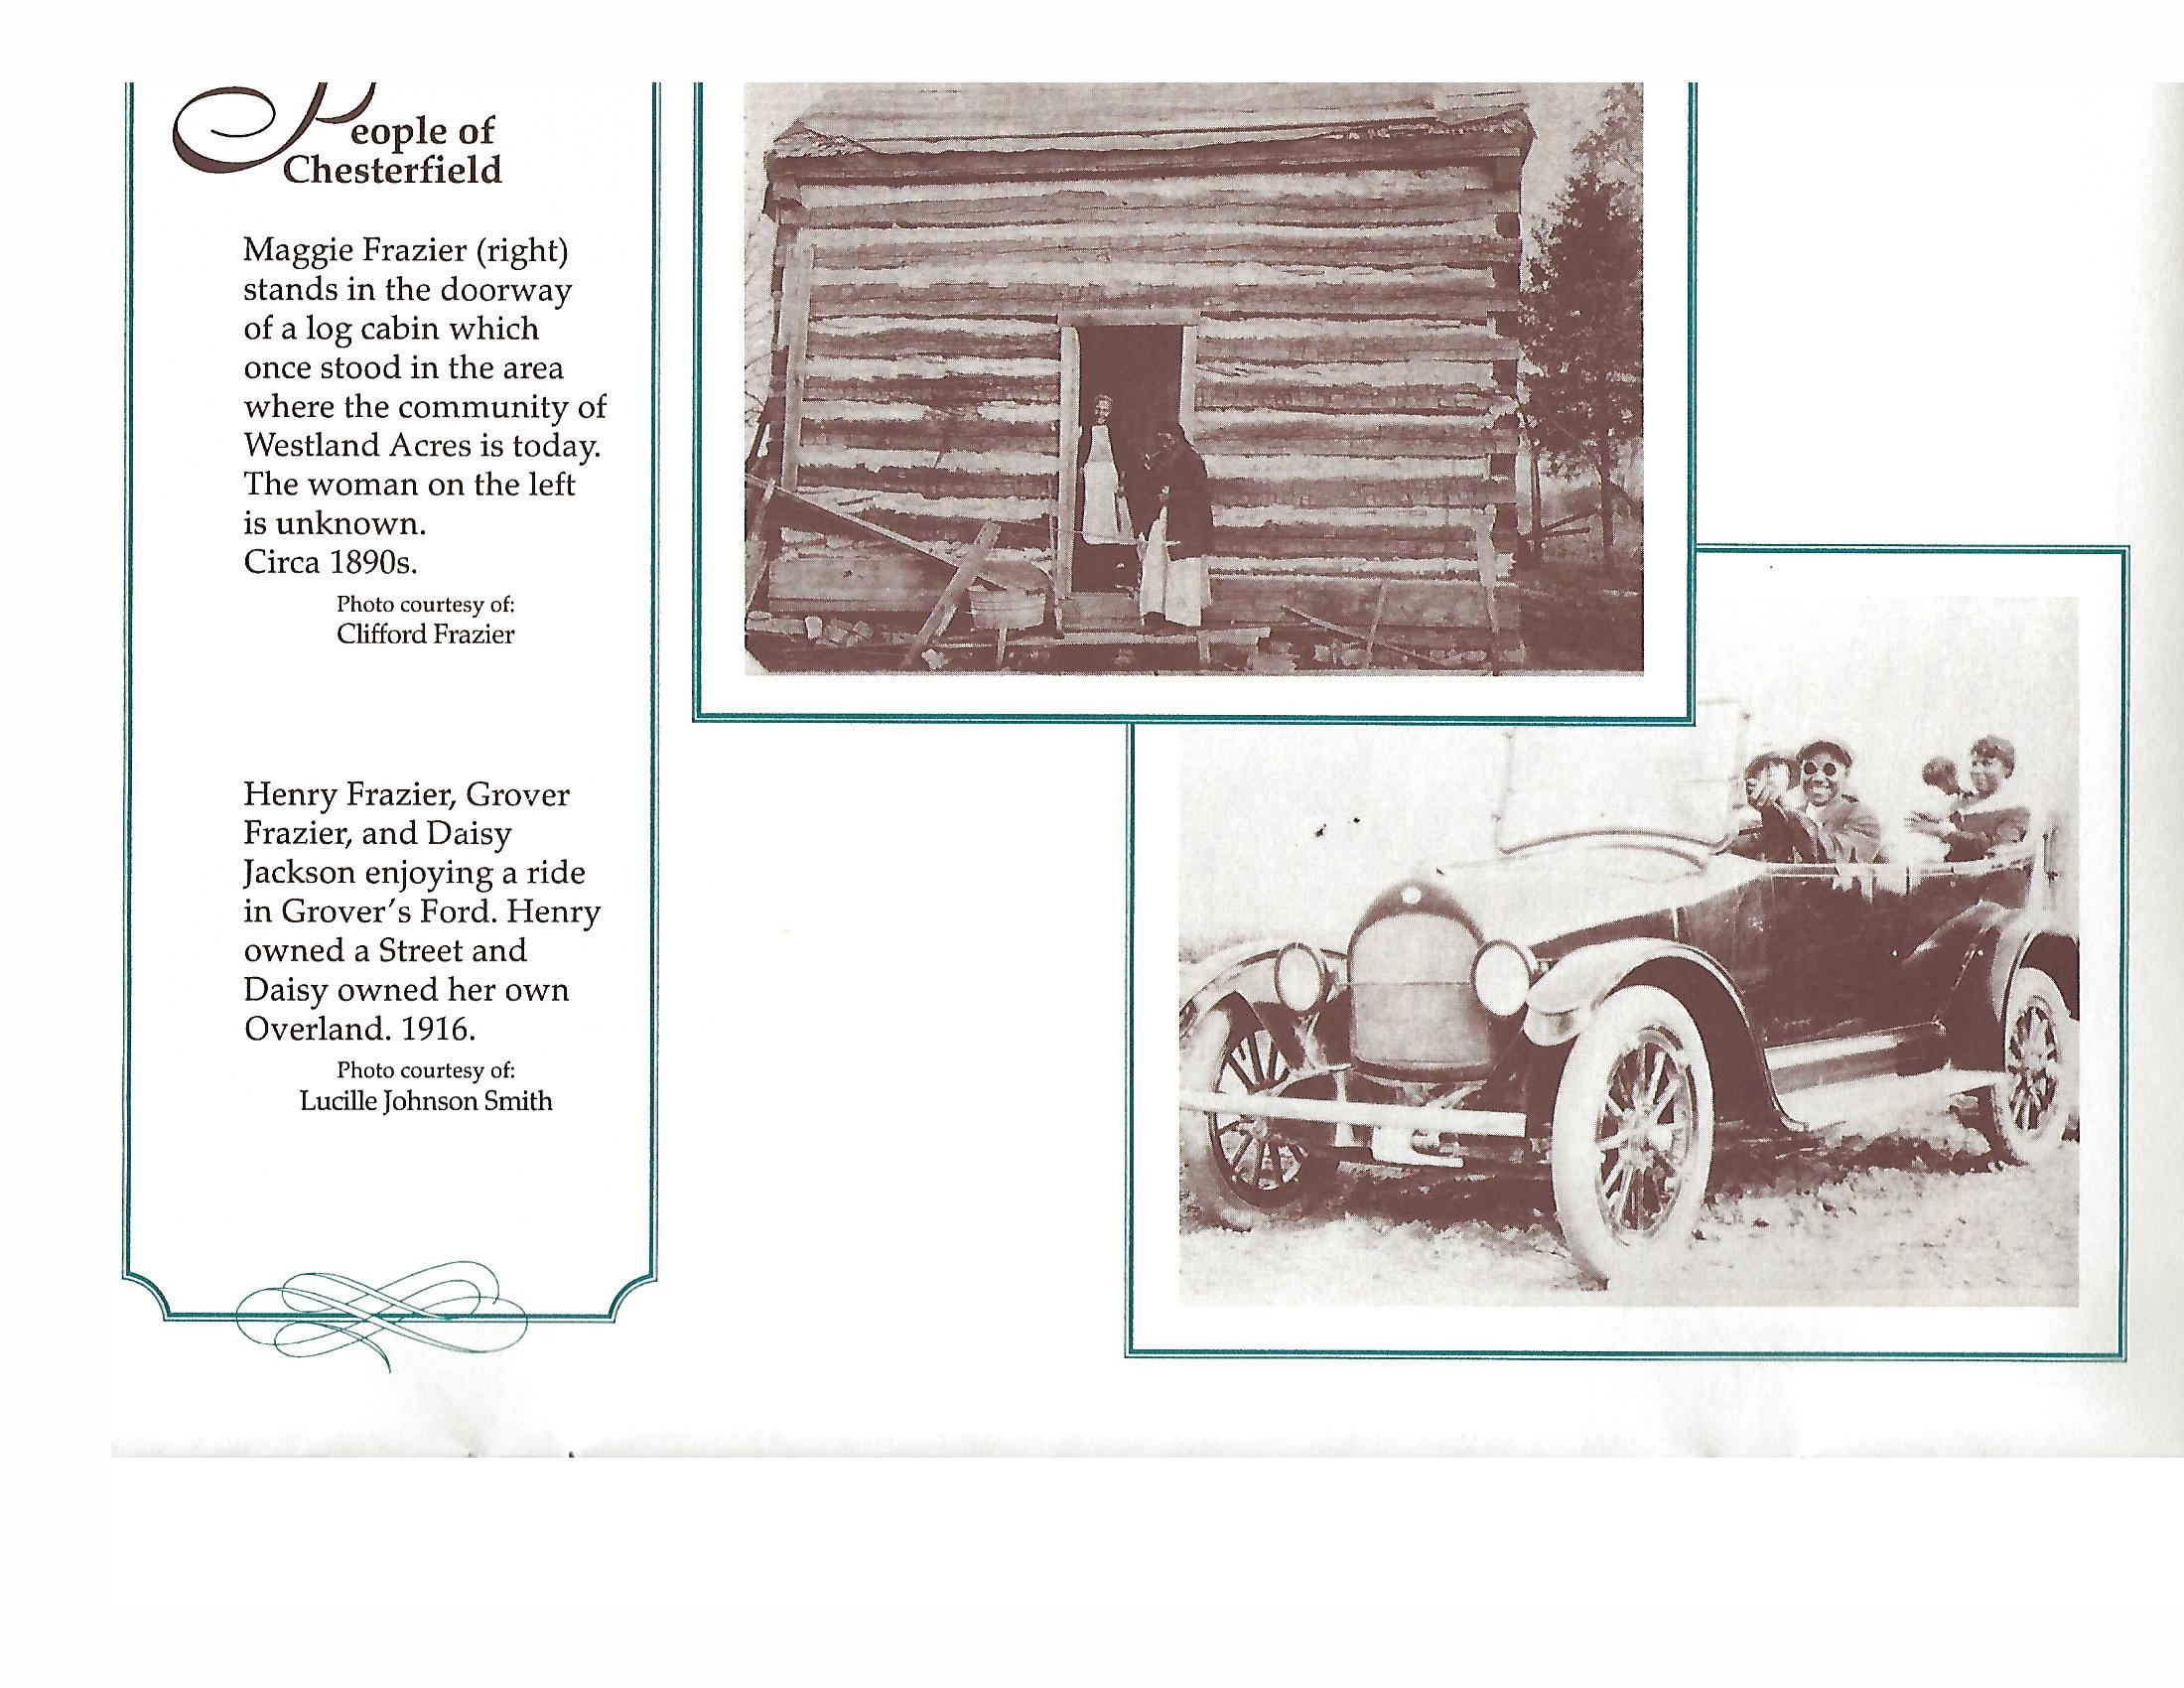 People of
Chesterfield
Maggie Frazier (right)
stands in the doorway
of a log cabin which
once stood in the area
where the community of
Westland Acres is today.
The woman on the left
is unknown.
Circa 1890s.
Photo courtesy of:
Clifford Frazier
Henry Frazier, Grover
Frazier, and Daisy
Jackson enjoying a ride
in Grover's Ford. Henry
owned a Street and
Daisy owned her own
Overland. 1916.
Photo courtesy of:
Lucille Johnson Smith